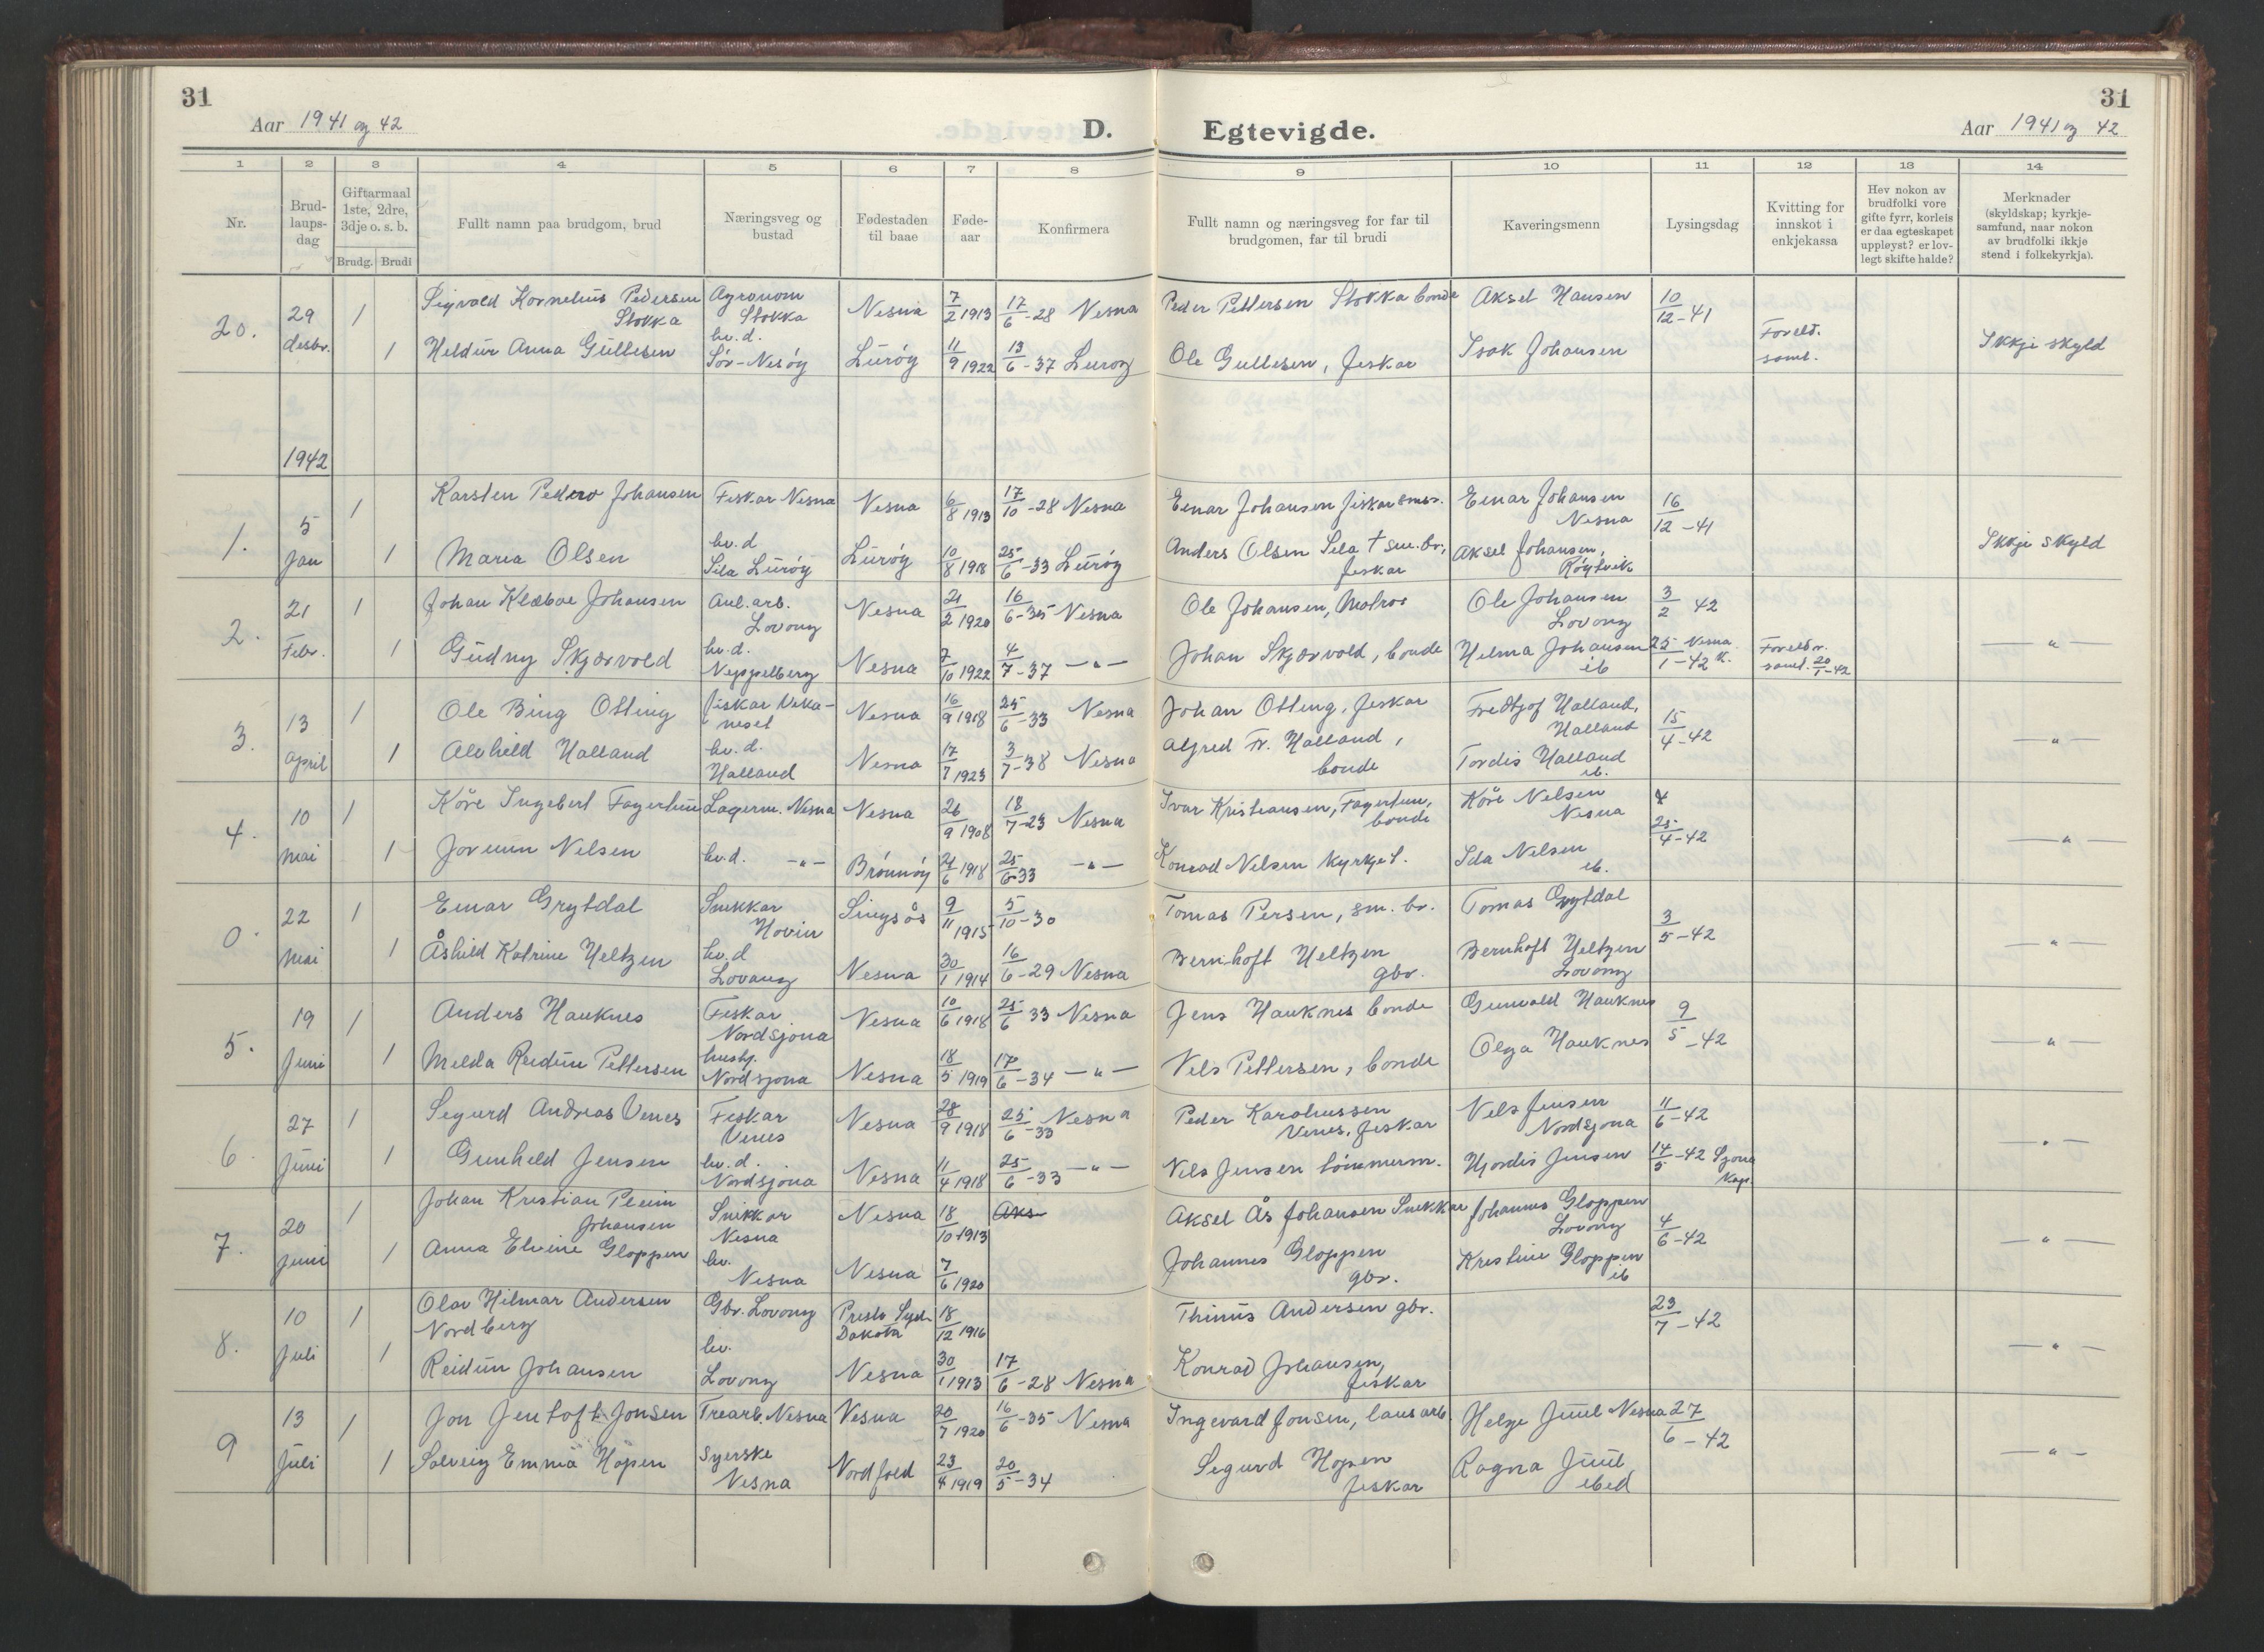 31
Aar 1941 og 42
D.
Egtevigde.
31
Aar 1941 og 42
1 2 3 4 5 6 7 8 9 10 11 12 13 14
Nr.
Brud-
laups-
dag
Giftarmaal
1ste, 2dre,
3dje o. s. b.
Brudg. Brudi
Fullt namn paa brudgom, brud
Næringsveg og
bustad
Fødestaden
til baae
Føde-
aar
Konfirmera
Fullt namn og næringsveg for far til
brudgomen, far til brudi
Kaveringsmenn
Lysingsdag
Kvitting for
innskot i
enkjekassa
Hev nokon av
brudfolki vore
gifte fyrr, korleis
er daa egteskapet
uppløyst? er lov-
legt skifte halde?
Merknader
(skyldskap; kyrkje-
samfund, naar nokon
av brudfolki ikkje
stend i folkekyrkja).
20.
29
desbr.
1
Sigvald Kornelius Pedersen
Stokka
Agronom
Stokka
Nesna
7/2 1913
17/6 - 28 Nesna
Peder Pettersen Stokka bonde
Aksel Hansen
10/12 - 41
1
Heldur Anna Gullesen
hv. d.
Sør-Nesøy
Lurøy
11/9 1922
13/6 - 37 Lurøy
Ole Gullesen, fiskar
Isak Johansen
Foreld.
samt.
Ikkje skyld
1942
1.
5
Jan
1
Karsten Pedero Johansen
Fiskar Nesna
Nesna
6/8 1913
17/10 - 28 Nesna
Einar Johansen fiskar smbr.
Einar Johansen
Nesna
16/12 - 41
1
Maria Olsen
hv. d
Sila Lurøy
Lurøy
10/8 1918
25/6 - 33 Lurøy
Anders Olsen Sila † sm. br,
fiskar
Aksel Johansen,
Røytvik
Ikkje skyld
2.
21
Febr.
1
Johan Klæboe Johansen
Anl. arb.
Lovong
Nesna
21/2 1920
16/6 - 35 Nesna
Ole Johansen, Matros
Ole Johansen
Lovong
3/2 42
1
Gudny Skjærvold
hv. d.
Neppelberg
Nesna
7/10 1922
4/7 - 37 — " —
Johan Skjærvold, bonde
Helma Johansen
ib
25/1 - 42 Nesna K.
Foreldr.
samt. 20/1 - 42
— " —
3.
13
april
1
Ole Bing Otting
Fiskar Vika-
neset
Nesna
16/9 1918
25/6 - 33 Nesna
Johan Otting, fiskar
Fredtjof Halland,
Halland
15/4 - 42
1
Alvhild Halland
hv. d.
Halland
Nesna
17/7 1923
3/7 - 38 Nesna
Alfred Fr. Halland,
bonde
Tordis Halland
ib.
— " —
4.
10
mai
1
Kåre Ingebert Fagertun
Lagerm. Nesna
Nesna
26/9 1908
18/7 - 23 Nesna
Ivar Kristiansen, Fagertun,
bonde
Kåre Nilsen
Nesna
25/4 - 42
1
Jorunn Nilsen
hv. d. — " —
Brønnøy
21/6 1918
25/6 - 33 — " —
Konrad Nilsen kyrkjet.
Ida Nilsen
ib.
— " —
0.
22
mai
1
Einar Grytdal
Snikkar
Hovin
Singsås
9/11 1915
5/10 - 30
Tomas Persen, sm. br.
Tomas Grytdal
3/5 - 42
1
Åshild Katrine Heltzen
hv. d
Lovong
Nesna
30/1 1914
16/6 - 29 Nesna
Bernhoft Heltzen
gbr.
Bernhoft Heltzen
Lovong
— " —
5.
19
Juni
1
Anders Hauknes
Fiskar
Nordsjona
Nesna
10/6 1918
25/6 33 Nesna
Jens Hauknes bonde
Gunvald Hauknes
9/5 - 42
1
Milda Reidun Pettersen
hushj.
Nordsjona
Nesna
18/5 1919
17/6 - 34 — " —
Nels Pettersen, bonde
Olga Hauknes
— " —
6.
27
Juni
1
Sigurd Andreas Venes
Fiskar
Venes
Nesna
28/9 1918
25/6 - 33 Nesna
Peder Karoliussen
Venes, fiskar
Nels Jensen
Nordsjona
11/6 - 42
1
Gunhild Jensen
hv. d.
Nordsjona
Nesna
11/4 1918
25/6 - 33 — " —
Nils Jensen tømmerm.
Hjordis Jensen
14/5 - 42 Sjona
Kap.
— " —
7.
20
Juni
1
Johan Kristian Plein
Johansen
Snikkar
Nesna
Nesna
18/10 1913
Aks
Aksel Ås Johansen Snekkar
Johannes Gloppen
Lovong
4/6 - 42
1
Anna Elvine Gloppen
hv.
Nesna
Nesna
7/6 1920
Johannes Gloppen
gbr.
Kristine Gloppen
ib
— " —
8.
10
Juli
1
Olav Hilmar Andersen
Nordberg
Gbr. Lovong
Presto Syd-
Dakota
18/12 1916
Thinus Andersen gbr.
23/7 - 42
1
Reidun Johansen
hv.
Lovong
Nesna
30/1 1913
17/6 - 28 Nesna
Konrad Johansen,
fiskar
— " —
9
13
Juli
1
Jon Jentoft Jonsen
Trearb. Nesna
Nesna
20/7 1920
16/6 - 35 Nesna
Ingevard Jonsen, lausarb.
Helge Juul Nesna
27/6 - 42
1
Solveig Emma Hopen
Syerske
Nesna
Nordfold
23/4 1919
20/5 - 34
Sigurd Hopen
fiskar
Ragna Juul
ibid
— " —